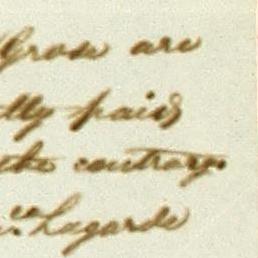 Grow are
tly paid
the contrary.
Lagarde